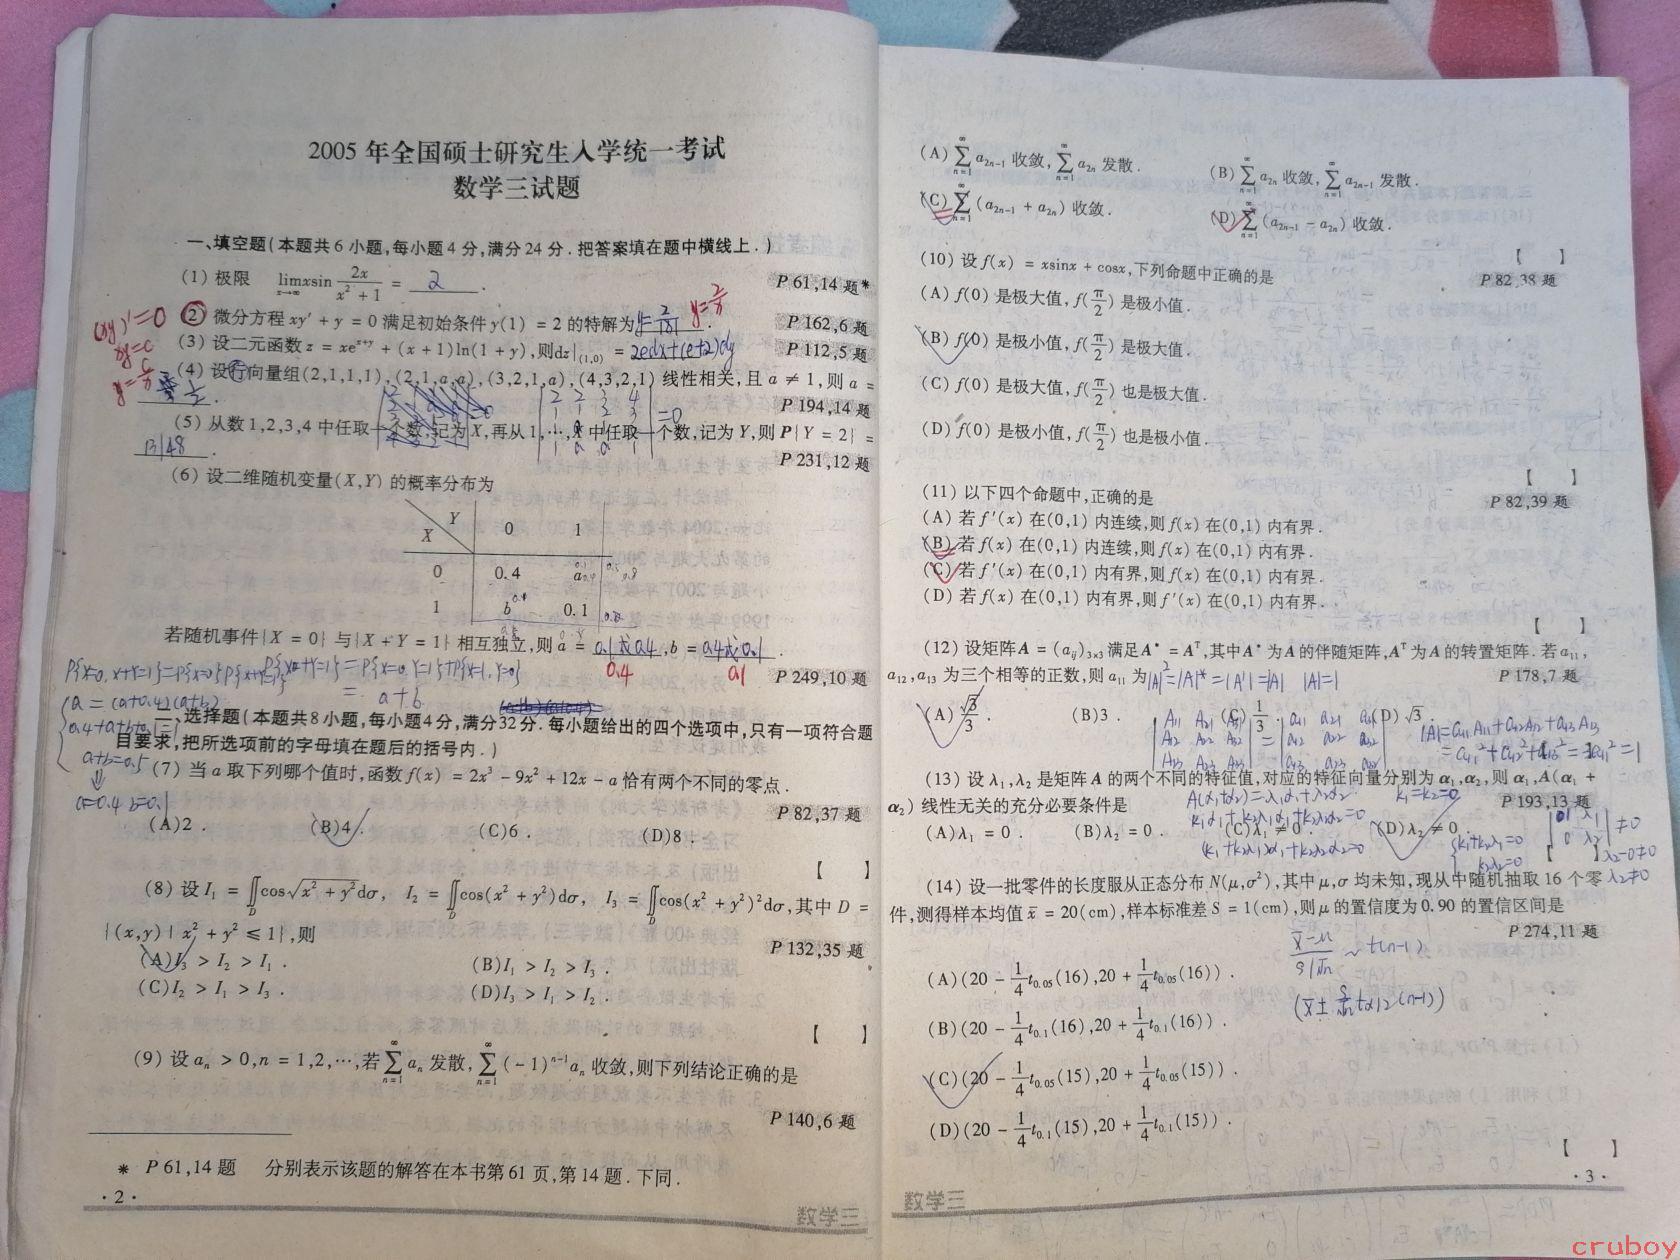 2005 年全国硕士研究生入学统一考试
数学三试题
一、填空题(本题共 6 小题,每小题 4 分,满分 24 分. 把答案填在题中横线上. )
(1) 极限 lim x→∞ xsin 2x/(x²+1) = 2 .
P 61,14 题*
(2) 微分方程 xy′ + y = 0 满足初始条件 y(1) = 2 的特解为 y=2/|x| . y=2/x
P 162,6 题
(xy)′=0
xy=c
y=c/x
(3) 设二元函数 z = xe^(x+y) + (x + 1)ln(1 + y),则dz|(1,0) = 2edx+(e+2)dy
P 112,5 题
(4) 设行向量组(2,1,1,1),(2,1,a,a),(3,2,1,a),(4,3,2,1) 线性相关,且 a ≠ 1,则 a =
1/2 .
P 194,14 题
(5) 从数 1,2,3,4 中任取一个数,记为 X,再从 1,…,X 中任取一个数,记为 Y,则 P{Y = 2} =
13/48 .
P 231,12 题
(6) 设二维随机变量(X,Y) 的概率分布为
Y 0 1
X
0 0.4 a
1 b 0.1
若随机事件{X = 0} 与{X + Y = 1} 相互独立,则 a = 0.1或0.4 ,b = 0.4或0.1 .
0.4 0.1
P 249,10 题
P{X=0, X+Y=1}=P{X=0}P{X+Y=1} P{X+Y=1}=P{X=0,Y=1}+P{X=1,Y=0}
= a+b
a=(a+0.4)(a+b)
0.4+a+b+0.1=1
a+b=0.5
⇓
a=0.4 b=0.1
二、选择题(本题共 8 小题,每小题 4 分,满分 32 分. 每小题给出的四个选项中,只有一项符合题
目要求,把所选项前的字母填在题后的括号内. )
(7) 当 a 取下列哪个值时,函数 f(x) = 2x³ - 9x² + 12x - a 恰有两个不同的零点.
P 82,37 题
(A)2 . (B)4 . (C)6 . (D)8 .
【 】
(8) 设 I₁ = ∬D cos√(x² + y²)dσ, I₂ = ∬D cos(x² + y²)dσ, I₃ = ∬D cos(x² + y²)²dσ,其中 D =
{(x,y) | x² + y² ≤ 1},则
P 132,35 题
(A)I₃ > I₂ > I₁ . (B)I₁ > I₂ > I₃ .
(C)I₂ > I₁ > I₃ . (D)I₃ > I₁ > I₂ .
【 】
(9) 设 aₙ > 0,n = 1,2,…,若 ∑(n=1→∞) aₙ 发散, ∑(n=1→∞) (- 1)ⁿ⁻¹aₙ 收敛,则下列结论正确的是
P 140,6 题
* P 61,14 题 分别表示该题的解答在本书第 61 页,第 14 题. 下同.
· 2 ·
数学三
(A) ∑(n=1→∞) a₂ₙ₋₁ 收敛, ∑(n=1→∞) a₂ₙ 发散. (B) ∑(n=1→∞) a₂ₙ 收敛, ∑(n=1→∞) a₂ₙ₋₁ 发散.
(C) ∑(n=1→∞) (a₂ₙ₋₁ + a₂ₙ) 收敛. (D) ∑(n=1→∞) (a₂ₙ₋₁ - a₂ₙ) 收敛.
【 】
(10) 设 f(x) = xsinx + cosx,下列命题中正确的是
P 82,38 题
(A) f(0) 是极大值, f(π/2) 是极小值.
(B) f(0) 是极小值, f(π/2) 是极大值.
(C) f(0) 是极大值, f(π/2) 也是极大值.
(D) f(0) 是极小值, f(π/2) 也是极小值.
【 】
(11) 以下四个命题中,正确的是
P 82,39 题
(A) 若 f′(x) 在(0,1) 内连续,则 f(x) 在(0,1) 内有界.
(B) 若 f(x) 在(0,1) 内连续,则 f(x) 在(0,1) 内有界.
(C) 若 f′(x) 在(0,1) 内有界,则 f(x) 在(0,1) 内有界.
(D) 若 f(x) 在(0,1) 内有界,则 f′(x) 在(0,1) 内有界.
【 】
(12) 设矩阵 A = (aᵢⱼ)₃ₓ₃ 满足 A* = Aᵀ,其中 A* 为 A 的伴随矩阵, Aᵀ 为 A 的转置矩阵. 若 a₁₁,
a₁₂,a₁₃ 为三个相等的正数,则 a₁₁ 为
P 178,7 题
|A|²=|A|*=|A′|=|A| |A|=1
(A) √3/3 . (B)3 . (C) 1/3 . (D) √3 .
|A|=a₁₁A₁₁+a₁₂A₁₂+a₁₃A₁₃
(13) 设 λ₁,λ₂ 是矩阵 A 的两个不同的特征值,对应的特征向量分别为 α₁,α₂,则 α₁,A(α₁ +
α₂) 线性无关的充分必要条件是
P 193,13 题
A(α₁+α₂)=λ₁α₁+λ₂α₂ k₁=k₂=0
k₁α₁+k₂λ₁α₁+k₂λ₂α₂=0
(A)λ₁ = 0 . (B)λ₂ = 0 . (C)λ₁ ≠ 0 . (D)λ₂ ≠ 0 .
(k₁+k₂λ₁)α₁+k₂λ₂α₂=0
k₁+k₂λ₁=0
k₂λ₂=0
λ₂≠0
【 】
(14) 设一批零件的长度服从正态分布 N(μ,σ²),其中 μ,σ 均未知,现从中随机抽取 16 个零
件,测得样本均值 x̄ = 20(cm),样本标准差 S = 1(cm),则 μ 的置信度为 0.90 的置信区间是
P 274,11 题
(x̄-μ)/(s/√n) ~ t(n-1)
(A)(20 - 1/4 t₀.₀₅(16),20 + 1/4 t₀.₀₅(16)) .
(x̄± s/√n tα/2(n-1))
(B)(20 - 1/4 t₀.₁(16),20 + 1/4 t₀.₁(16)) .
(C)(20 - 1/4 t₀.₀₅(15),20 + 1/4 t₀.₀₅(15)) .
(D)(20 - 1/4 t₀.₁(15),20 + 1/4 t₀.₁(15)) .
【 】
· 3 ·
数学三
cruboy